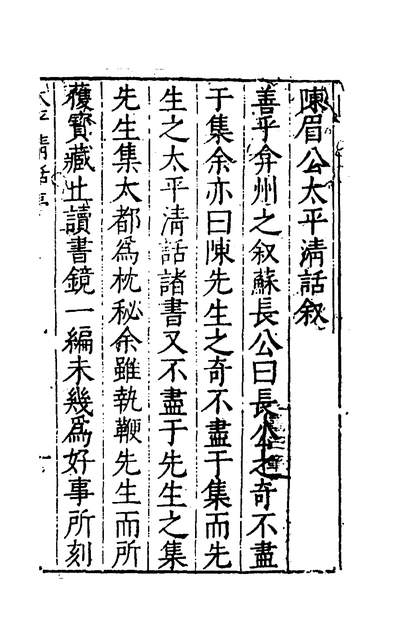 陳眉公太平清話叙
善乎弇州之叙蘇長公曰長公之奇不盡
于集余亦曰陳先生之奇不盡于集而先
生之太平清話諸書又不盡于先生之集
先生集太都爲枕秘余雖執鞭先生而所
獲寳藏止讀書鏡一編未幾爲好事所刻
太平清話序